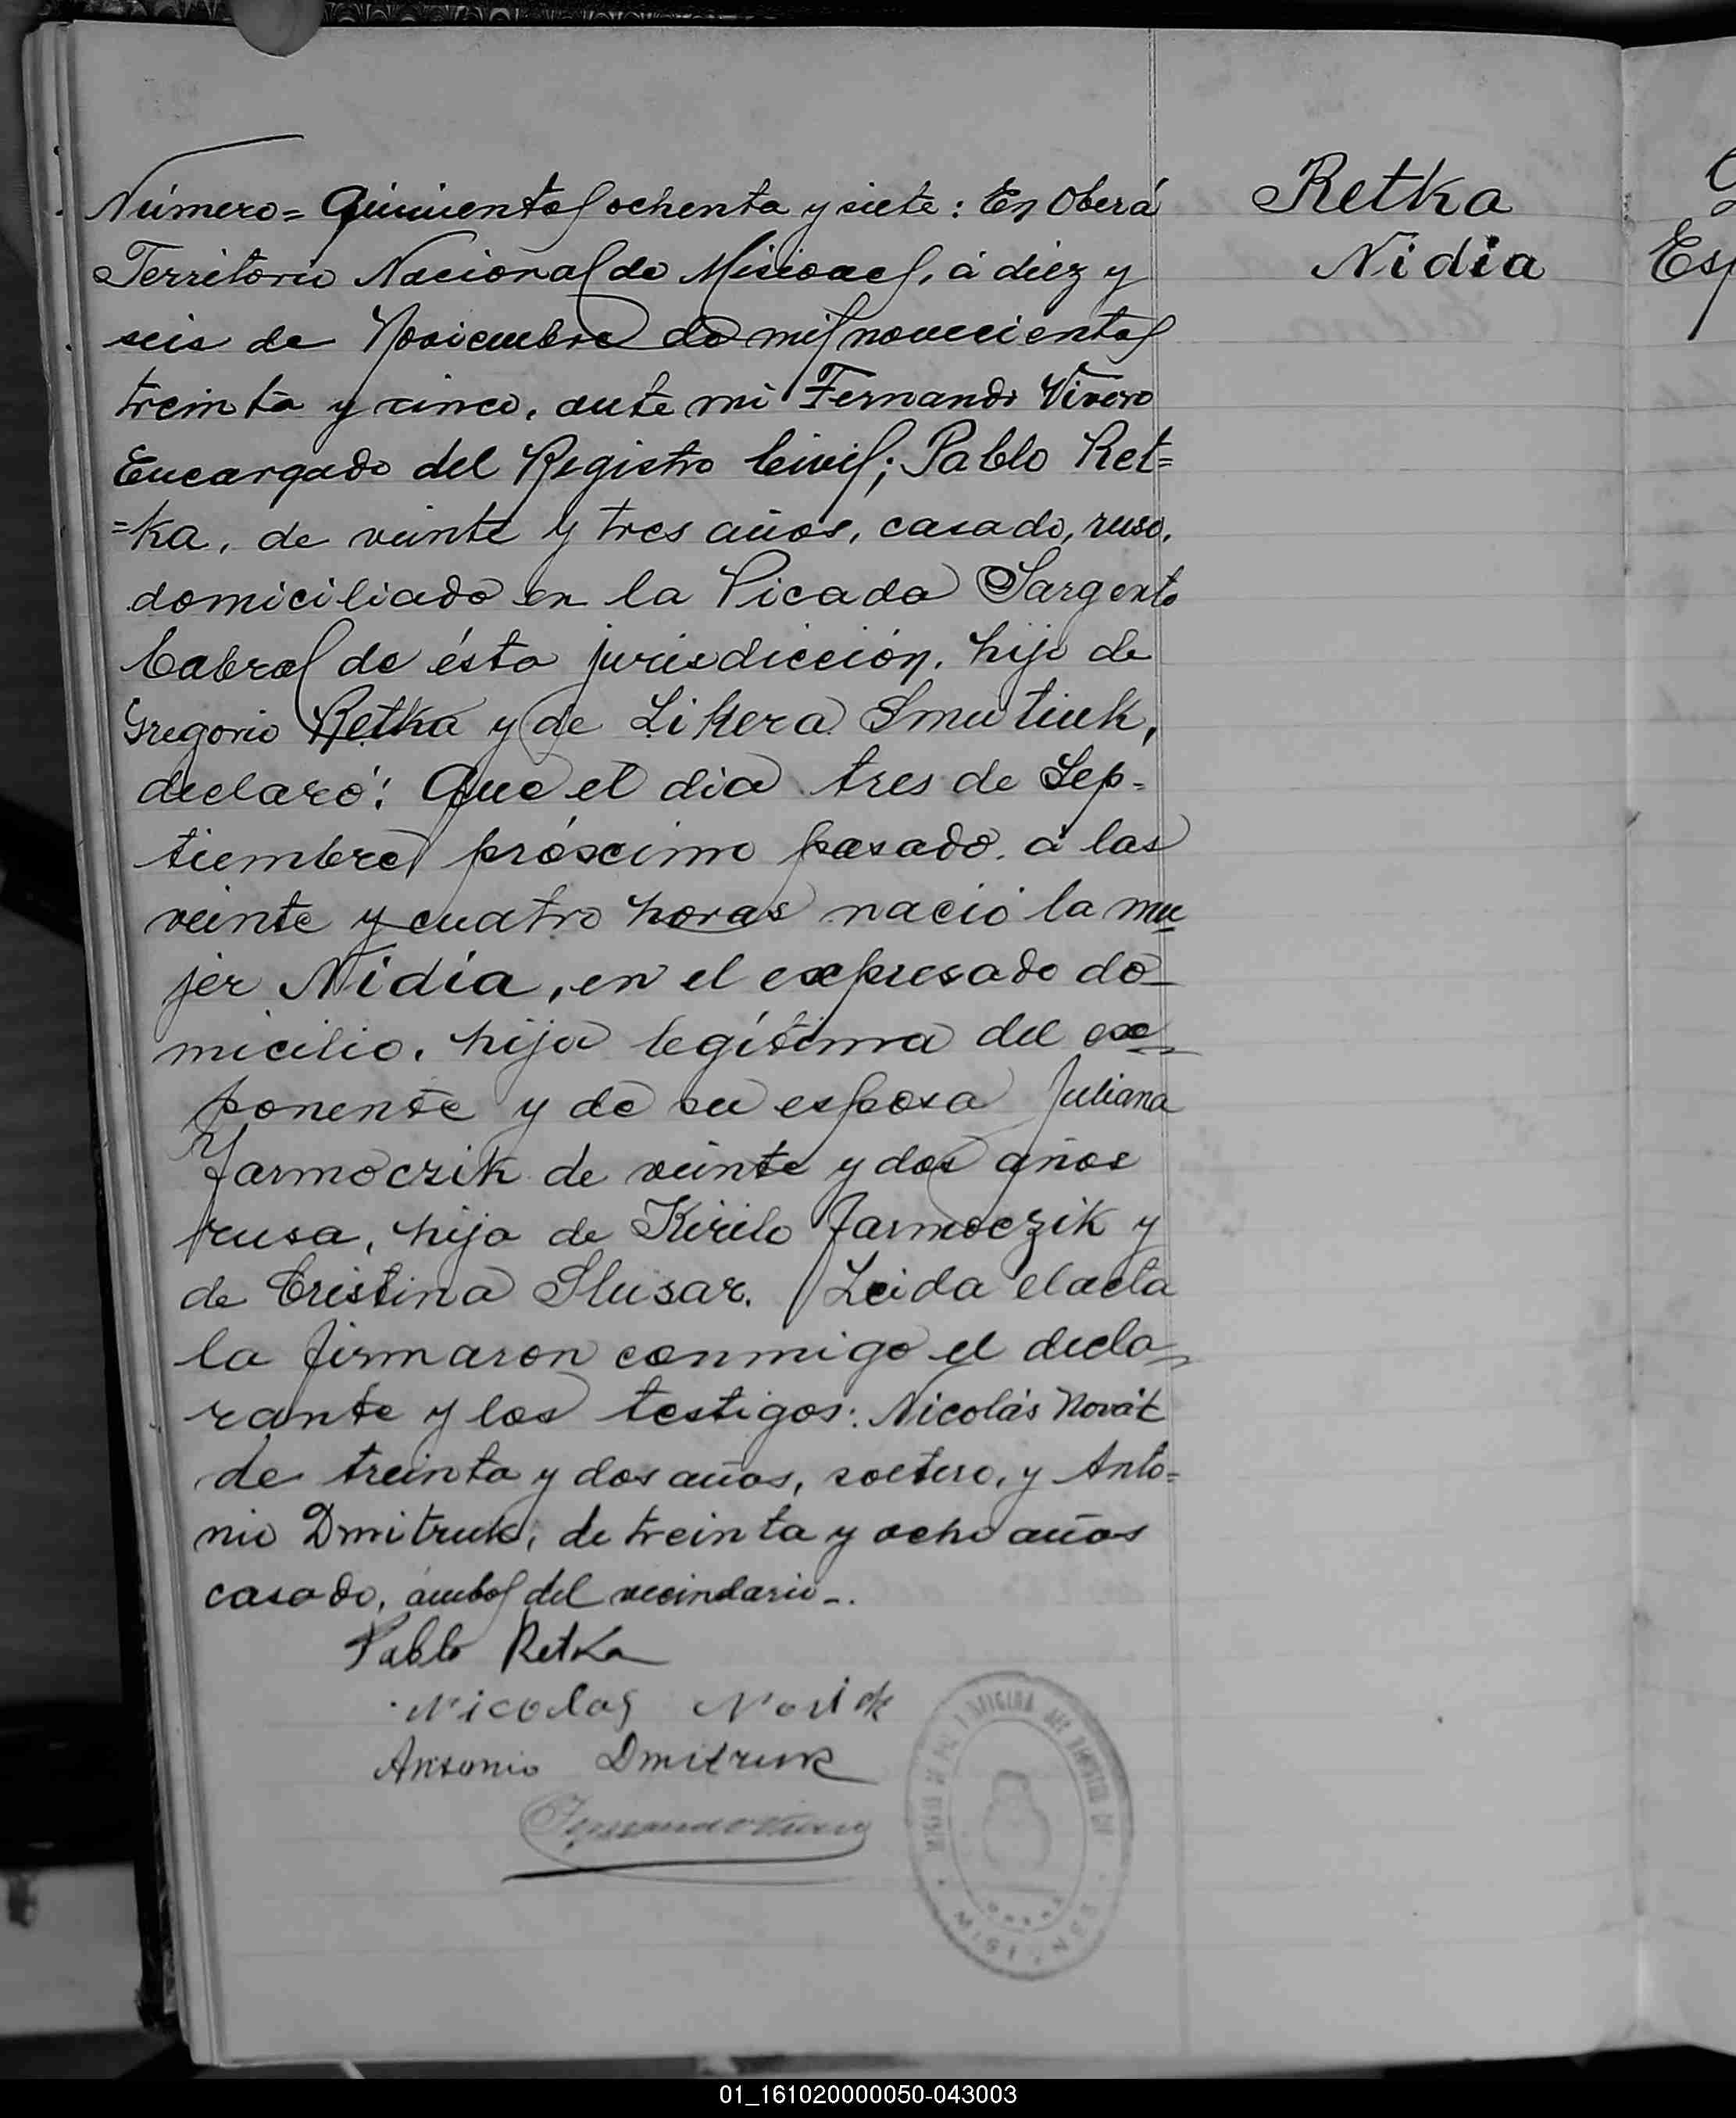 Número = Quinientos ochenta y siete: En Oberá
Territorio Nacional de Misiones, á diez y
seis de Noviembre de mil novecientos
treinta y cinco, ante mi Fernando Vivero
Encargado del Registro Civil; Pablo Ret=
=ka, de veinte y tres años, casado, ruso,
domiciliado en la Picada Sargento
Cabral de ésta jurisdicción, hijo de
Gregorio Retka y de Likera Smutiuk,
declaró: Que el dia tres de Sep-
tiembre próscimo pasado, á las
veinte y cuatro horas nació la mu
jer Nidia, en el expresado do-
micilio, hija legítima del ex=
ponente y de su esposa Juliana
Jarmoczik de veinte y dos años
rusa, hija de Kirilo Jarmoczik y
de Cristina Slusar. Leida el acta
la firmaron conmigo el decla-
rante y los testigos: Nicolás Novák
de treinta y dos años, soltero, y Anto=
nio Dmitruk, de treinta y ocho años
casado, ámbos del vecindario-.
Pablo Retka
Nicolas
Antonio Dmitruk
Retka
Nidia
Esp
01_161020000050-043003